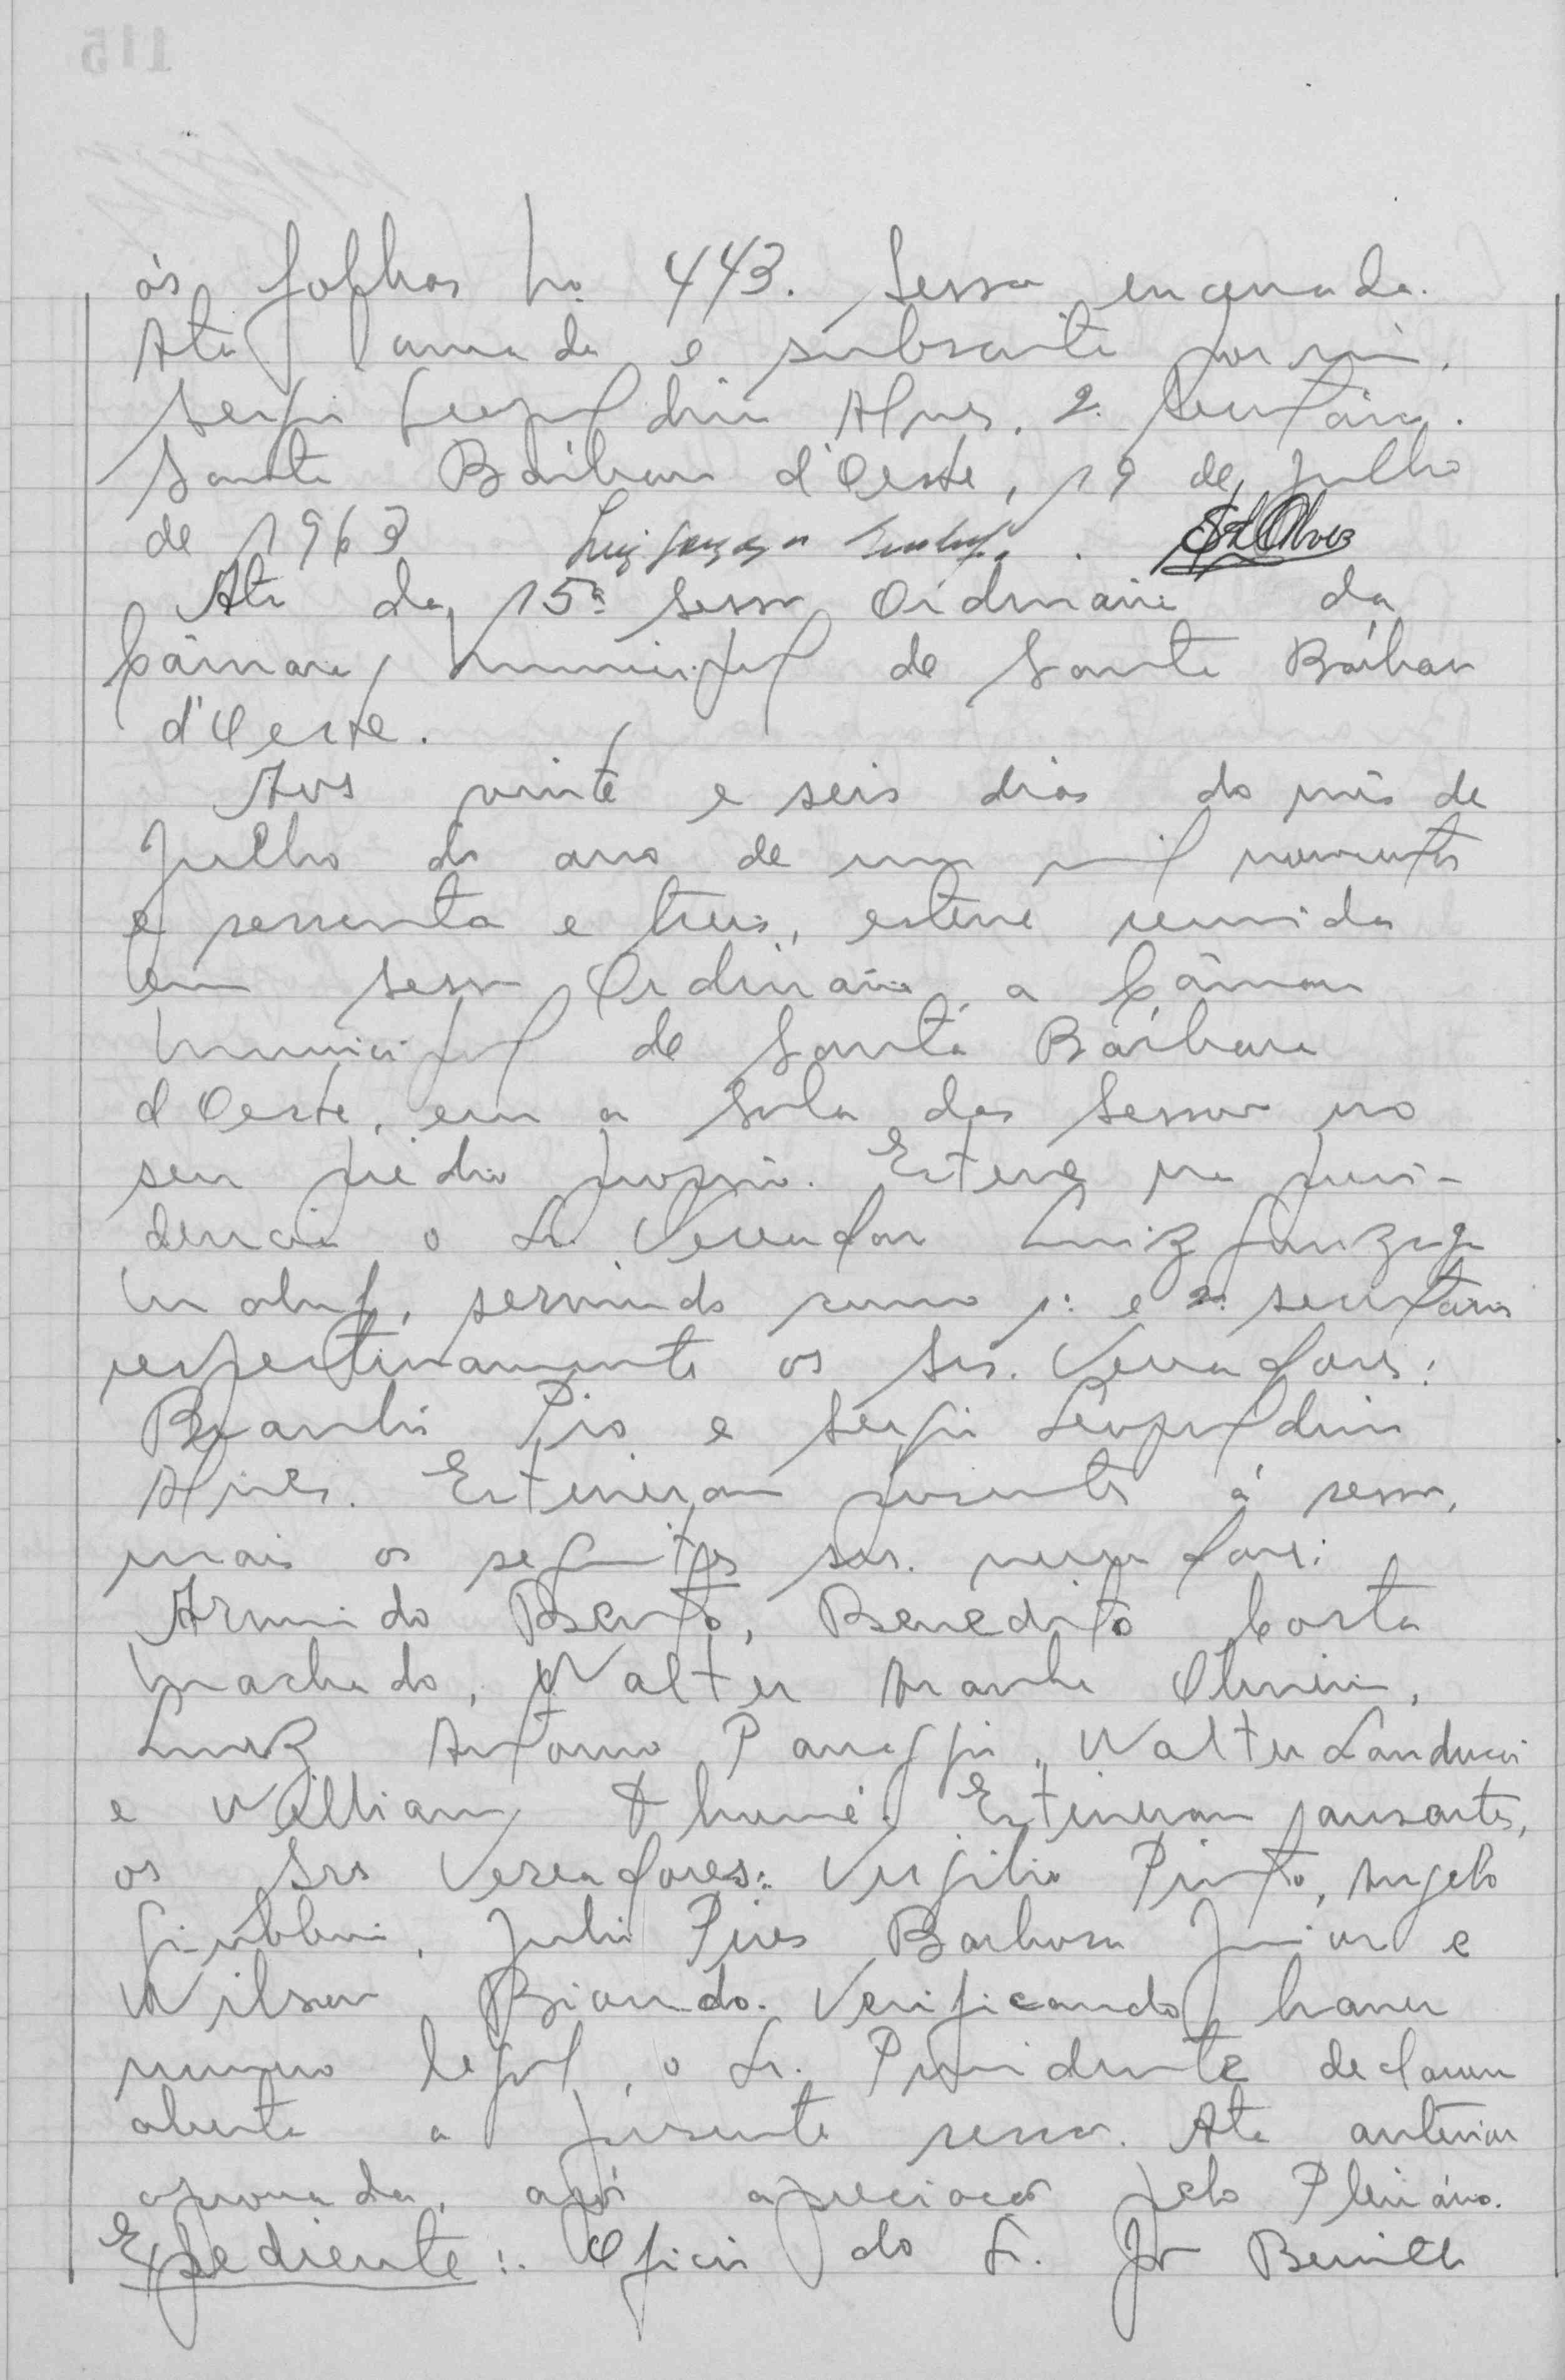 ás folhas no. 443. Sessão encerrada.
Ata lavrada e subscrita por mim.
Sergio Leopoldino Alves, 2º Secretário.
Santa Bárbara d'Oeste, 19 de julho
de 1963 Luiz Gonzaga
Ata da 15ª sessão Ordinária da
Câmara Municipal de Santa Bárbara
d'Oeste.
Aos vinte e seis dias do mês de
Julho do ano de um mil novecentos
e sessenta e treis, esteve reunida
em sessão Ordinária, a Câmara
Municipal de Santa Bárbara
d'Oeste, em a sala das sessões no
seu prédio proprio. Esteve na presi-
dencia o Sr. Vereador Luiz Gonzaga
servindo como 1º e 2º secretários
respectivamente os Srs. Vereadores:
Braulio Pio e Sergio Leopoldino
Alves. Estiveram presentes á sessão,
mais os seguintes srs. vereadores:
Armindo Bento, Benedito Costa
Machado, Walter Oliveira,
Luiz Antonio Panaggio, Walter Landucci
e William Thumé. Estiveram ausentes,
os Srs Vereadores: Virgilio Pinto, Angelo
Giubbina, Julio Pires Barbosa Junior e
Wilson Biondo. Verificando haver
numero legal, o Sr. Presidente declarou
aberta a presente sessão. Ata anterior
aprovada, após apreciação pelo Plenário.
Expediente:. Oficio do Sr.